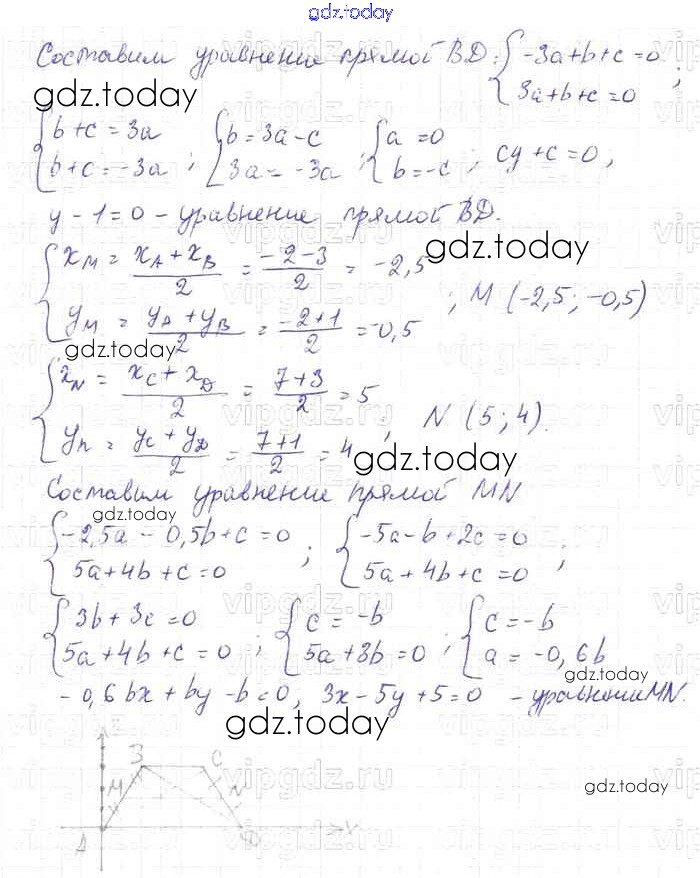 gdz.today
Составим уравнение прямой BD: { -3a+b+c=0
3a+b+c=0 ;
gdz.today
{ b+c=3a
b+c=-3a ; { b=3a-c
3a=-3a ; { a=0
b=-c ; cy+c=0,
y-1=0 - уравнение прямой BD.
gdz.today
{ x_M = (x_A + x_B)/2 = (-2-3)/2 = -2,5
y_M = (y_A + y_B)/2 = (-2+1)/2 = -0,5 ; M (-2,5; -0,5)
gdz.today
{ x_N = (x_C + x_D)/2 = (7+3)/2 = 5
y_n = (y_C + y_D)/2 = (7+1)/2 = 4 ; N (5; 4).
gdz.today
Составим уравнение прямой MN
gdz.today
{ -2,5a - 0,5b+c=0
5a+4b+c=0 ; { -5a-b+2c=0
5a+4b+c=0 ;
{ 3b+3c=0
5a+4b+c=0 ; { c=-b
5a+3b=0 ; { c=-b
a=-0,6b
gdz.today
-0,6bx+by-b=0, 3x-5y+5=0 - уравнение MN.
gdz.today
B C
M N
gdz.today
A D x